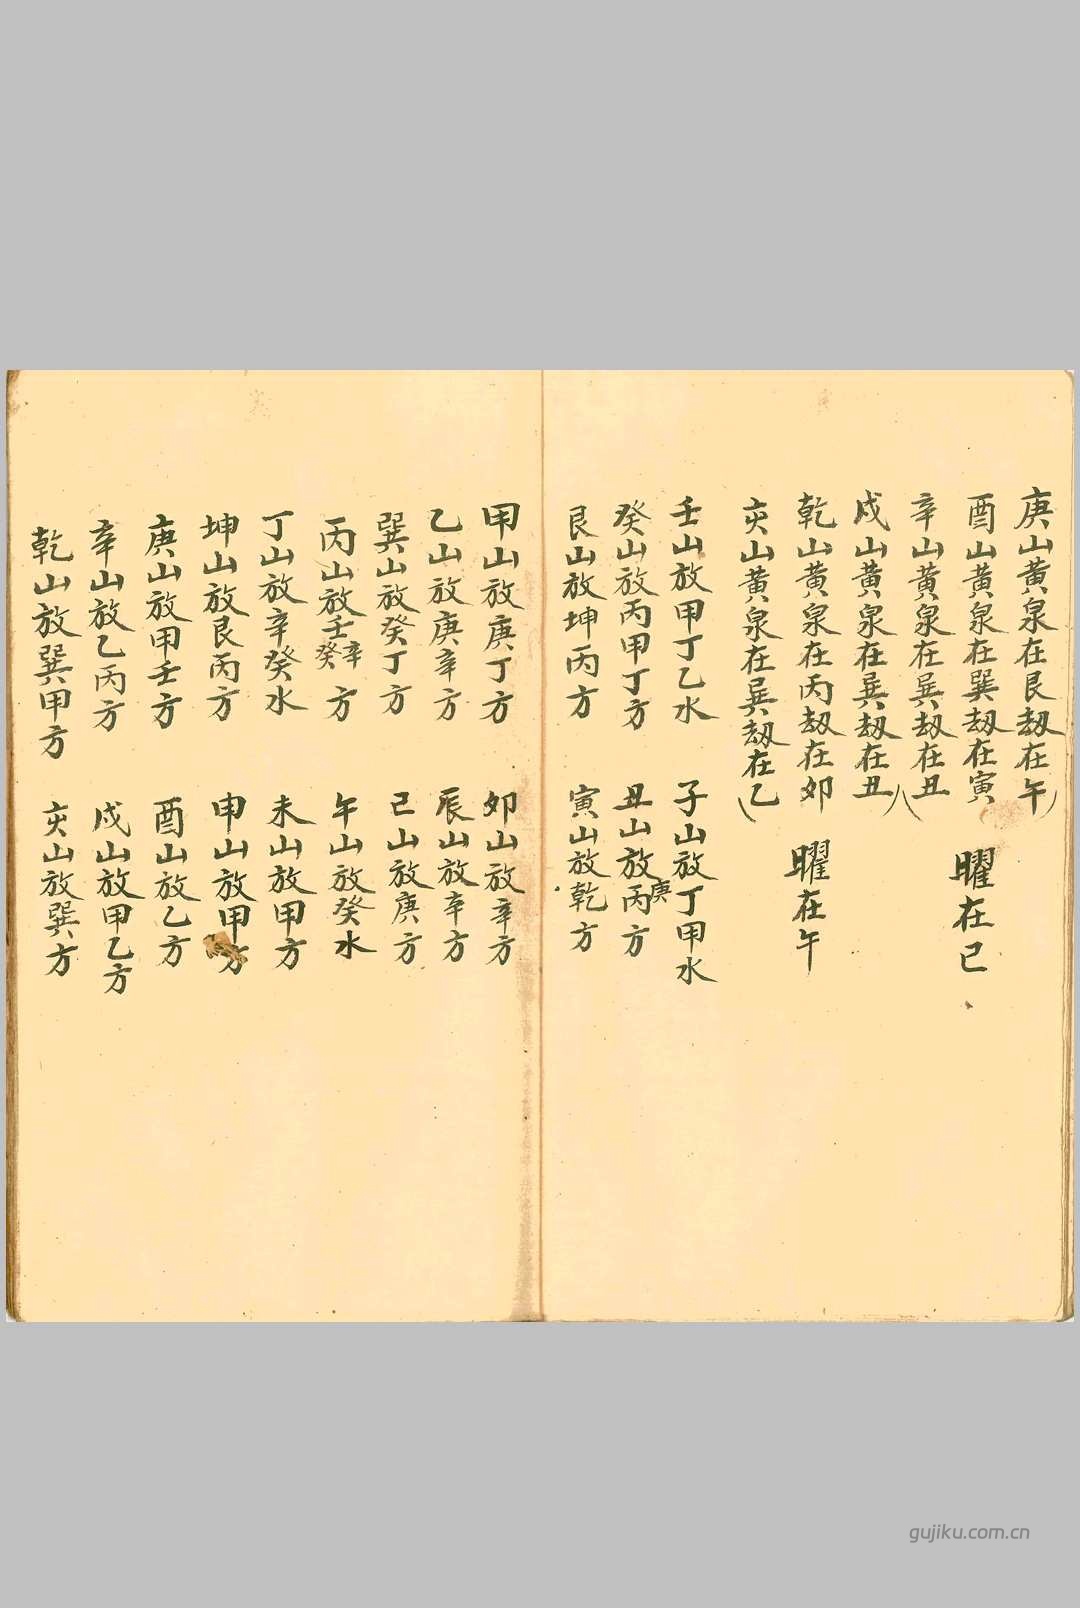 庚山黃泉在艮劫在午
酉山黃泉在巽劫在寅 曜在巳
辛山黃泉在巽劫在丑
戌山黃泉在巽劫在丑
乾山黃泉在丙劫在卯 曜在午
亥山黃泉在巽劫在乙
壬山放甲丁乙水 子山放丁甲水
癸山放丙甲丁方 丑山放丙庚方
艮山放坤丙方 寅山放乾方
甲山放庚丁方 卯山放辛方
乙山放庚辛方 辰山放辛方
巽山放癸丁方 巳山放庚方
丙山放壬辛癸方 午山放癸水
丁山放辛癸水 未山放甲方
坤山放艮丙方 申山放甲方
庚山放甲壬方 酉山放乙方
辛山放乙丙方 戌山放甲乙方
乾山放巽甲方 亥山放巽方
gujiku.com.cn